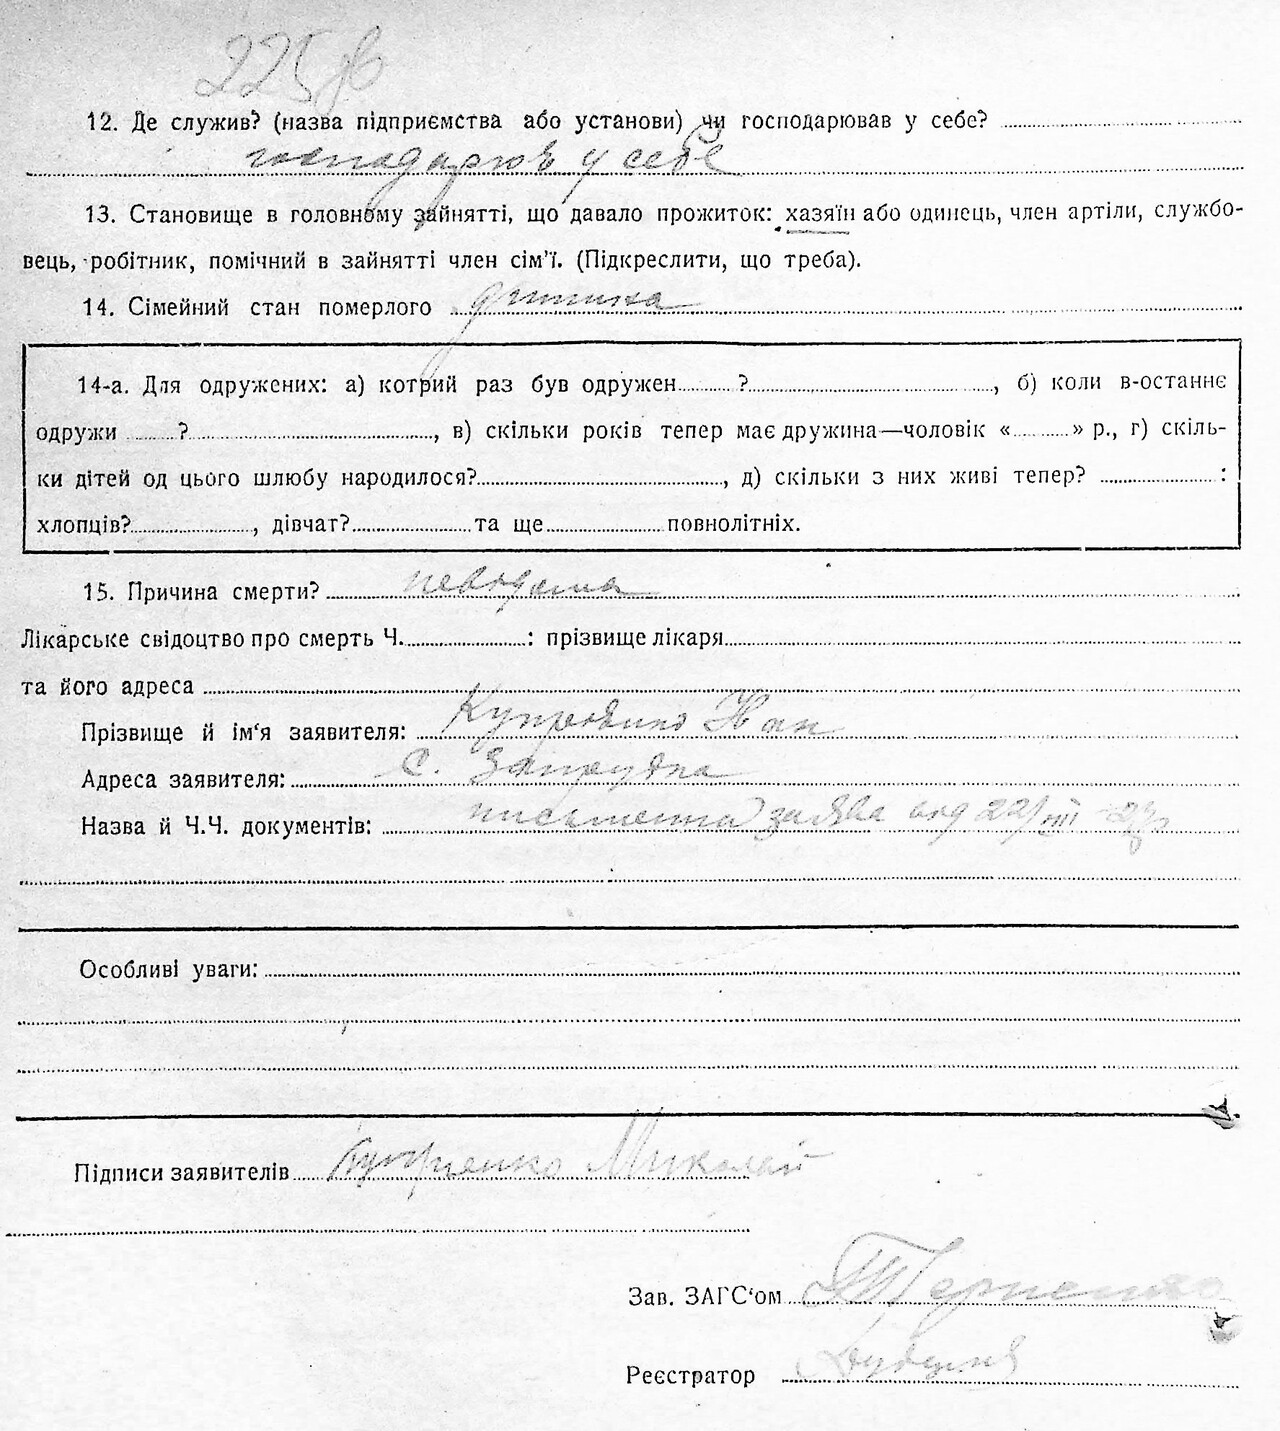 225
12. Де служив? (назва підприємства або установи) чи господарював у себе?
господарюв у себе
13. Становище в головному зайнятті, що давало прожиток: хазяїн або одинець, член артіли, службо-
вець, робітник, помічний в зайнятті член сім'ї. (Підкреслити, що треба).
14. Сімейний стан померлого дитина
14-а. Для одружених: а) котрий раз був одружен ?, б) коли в-останнє
одружи ?, в) скільки років тепер має дружина—чоловік « » р., г) скіль-
ки дітей од цього шлюбу народилося?, д) скільки з них живі тепер? :
хлопців?, дівчат? та ще повнолітніх.
15. Причина смерти? невідома
Лікарське свідоцтво про смерть Ч. : прізвище лікаря
та його адреса
Прізвище й ім'я заявителя:
Адреса заявителя: с. Запрудка
Назва й Ч.Ч. документів: письменна заява від 22/VIII
Особливі уваги:
Підписи заявителів Миколай
Зав. ЗАГС'ом
Реєстратор